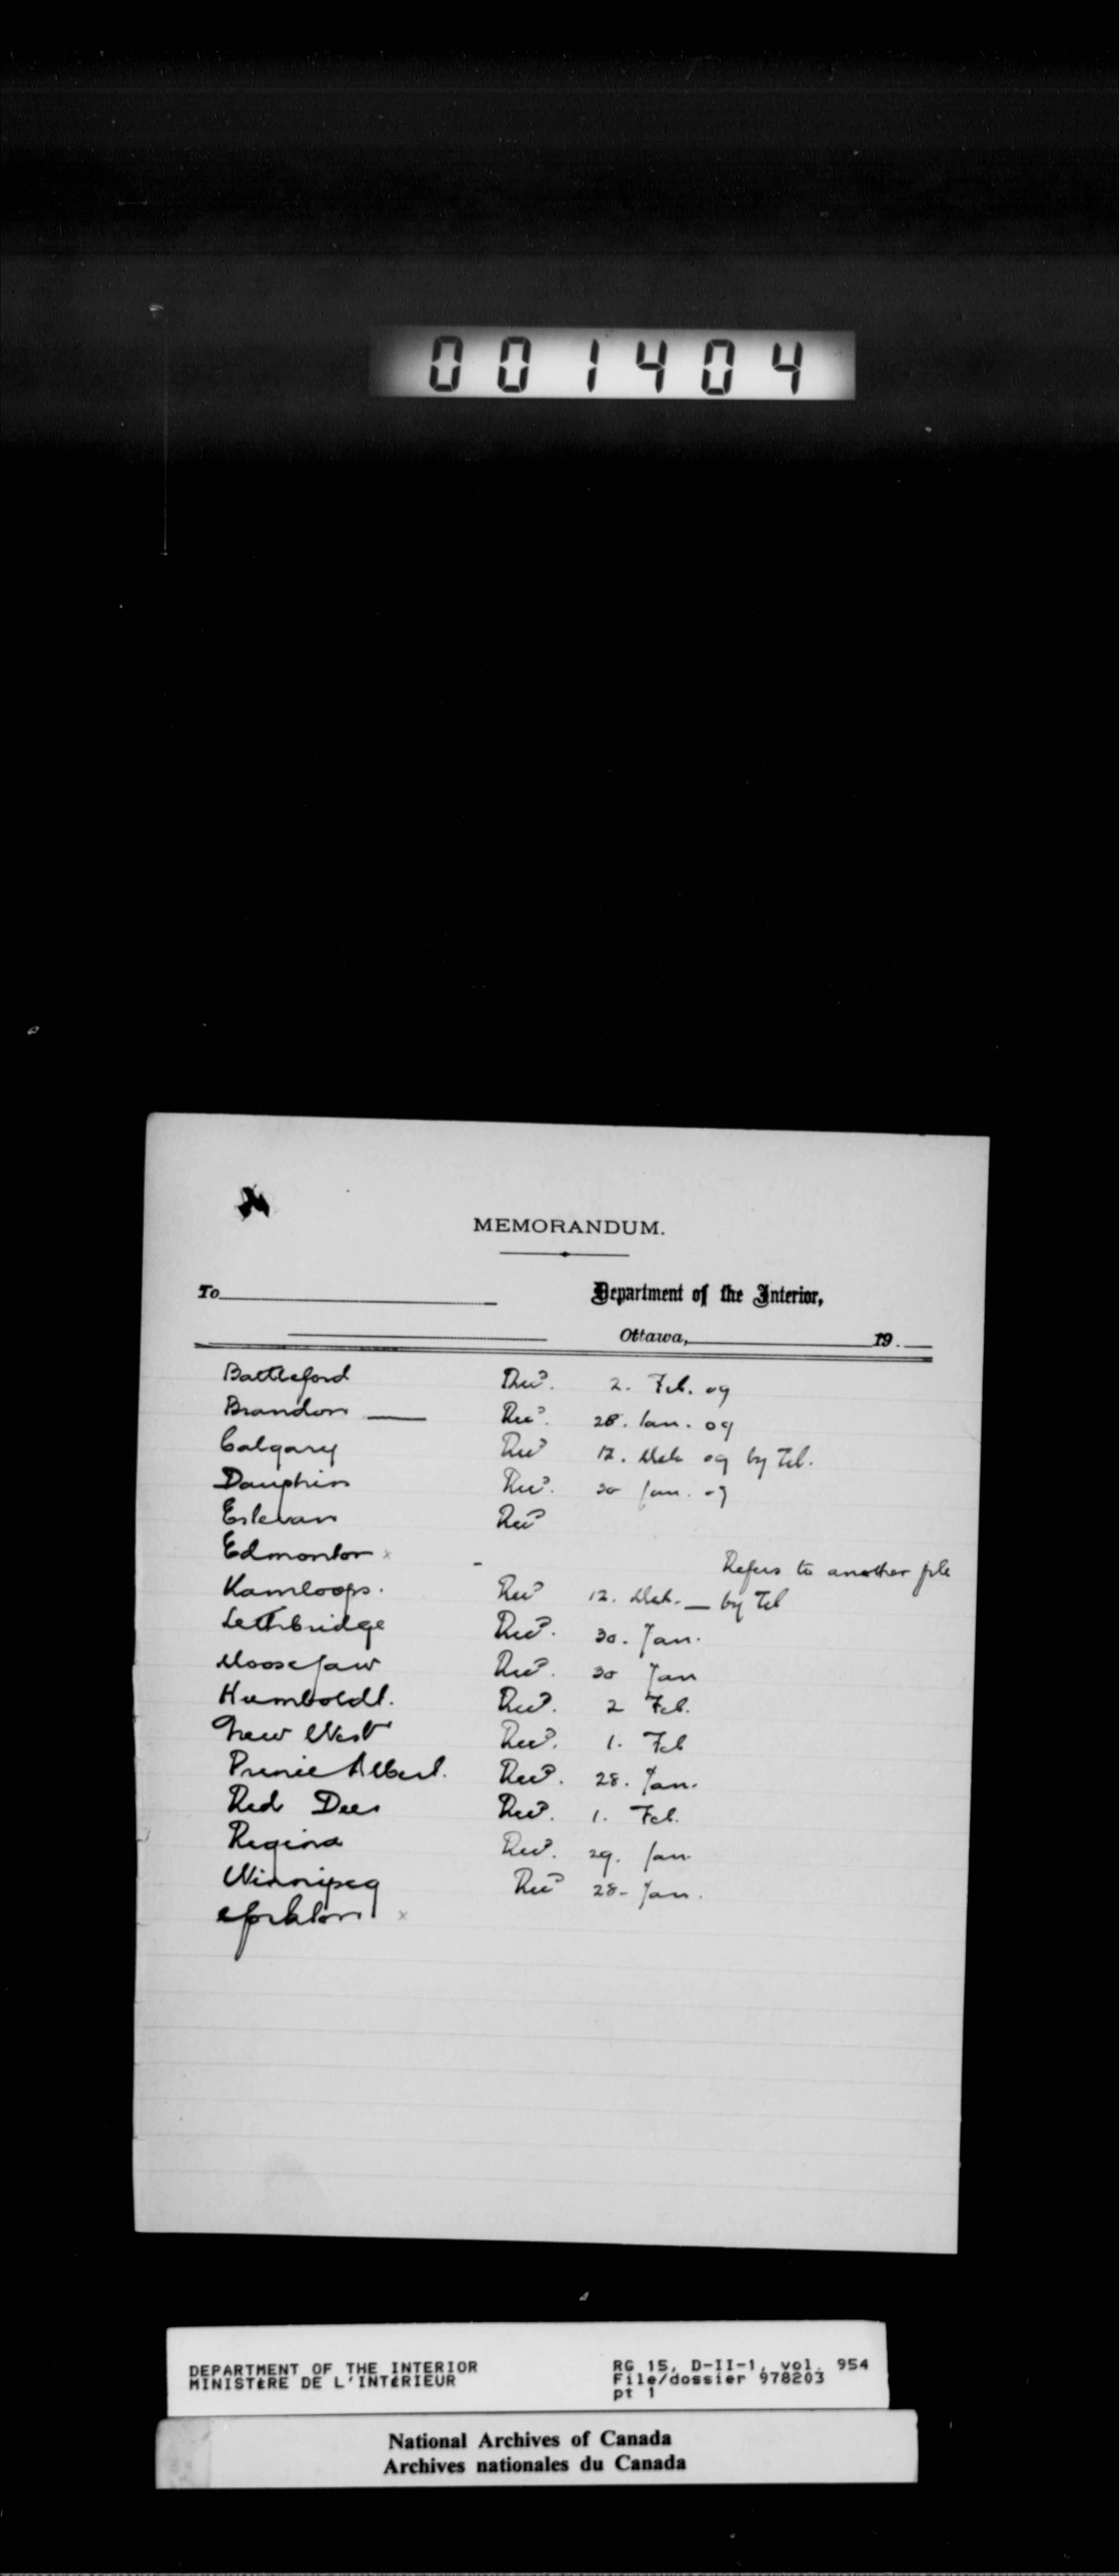 001404
MEMORANDUM.
To
Department of the Interior,
Ottawa, 19.
Battleford Rec'd. 2. Feb. 09
Brandon — Rec'd. 28. Jan. 09
Calgary Rec'd 12. Mch 09 by Tel.
Dauphin Rec'd. 30 Jan. 09
Estevan Rec'd
Edmonton x - Refers to another file
Kamloops. Rec'd 12. Mch. — by Tel
Lethbridge Rec'd. 30. Jan.
Moose Jaw Rec'd. 30 Jan
Humboldt. Rec'd. 2 Feb.
New West Rec'd. 1. Feb
Prince Albert. Rec'd. 28. Jan.
Red Deer Rec'd. 1. Feb.
Regina Rec'd. 29. Jan
Winnipeg Rec'd 28- Jan.
Yorkton x
DEPARTMENT OF THE INTERIOR
MINISTÈRE DE L'INTÉRIEUR
RG 15, D-II-1, vol. 954
File/dossier 978203
pt 1
National Archives of Canada
Archives nationales du Canada